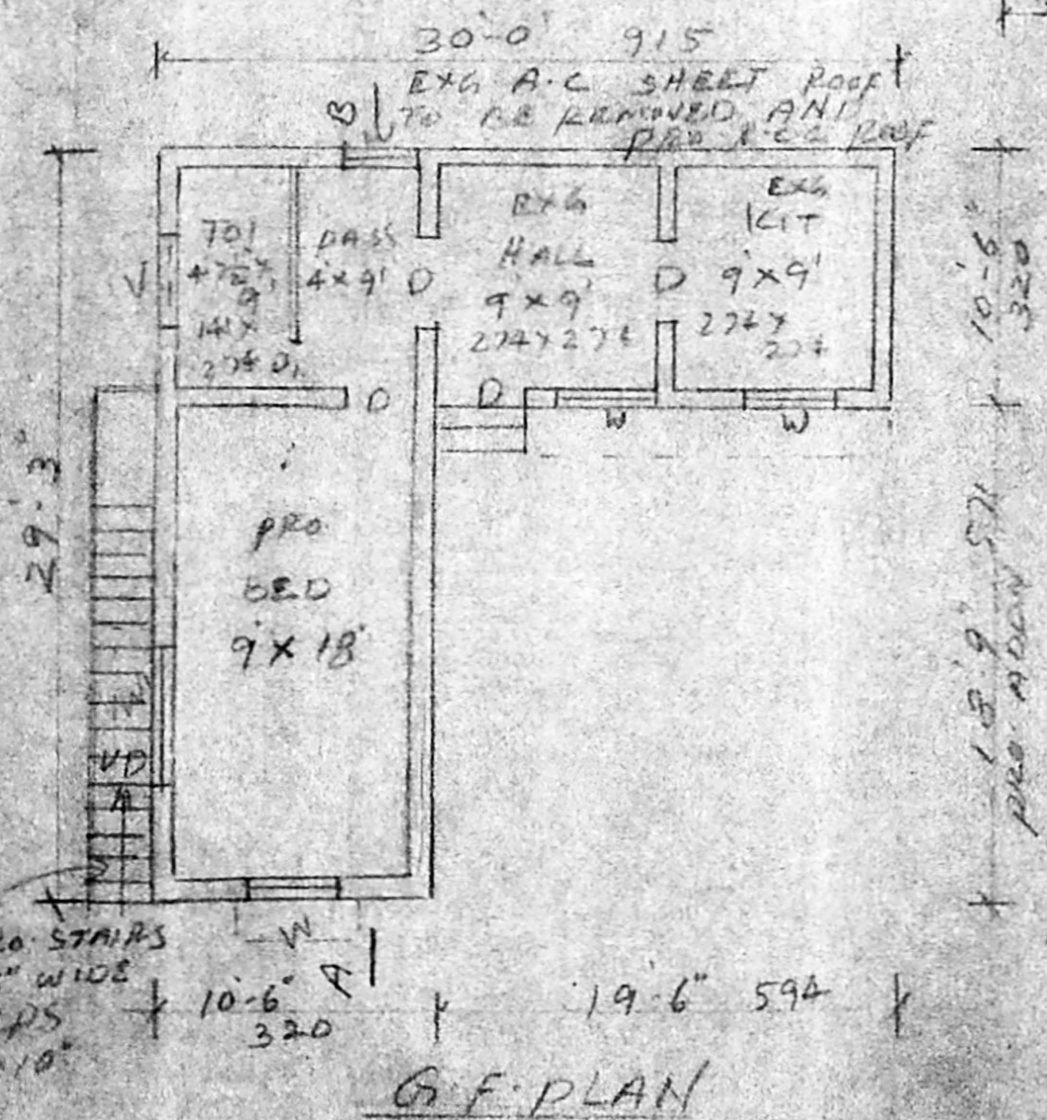 30'-0" 915
EXG A.C SHEET ROOF
TO BE REMOVED AND
PRO R.C.C ROOF
B
29'-3"
V
TOI
9'
274 D1
PASS
4'x9'
D
EXG
HALL
9'x9'
274x274
D
EXG
KIT
9'x9'
274x
274
10'-6"
320
D
D
W
W
PRO
BED
9'x18'
18'-9" 571
PRO ADDN
UP
STAIRS
WIDE
W
A
10'-6"
320
19'-6" 594
G.F. PLAN